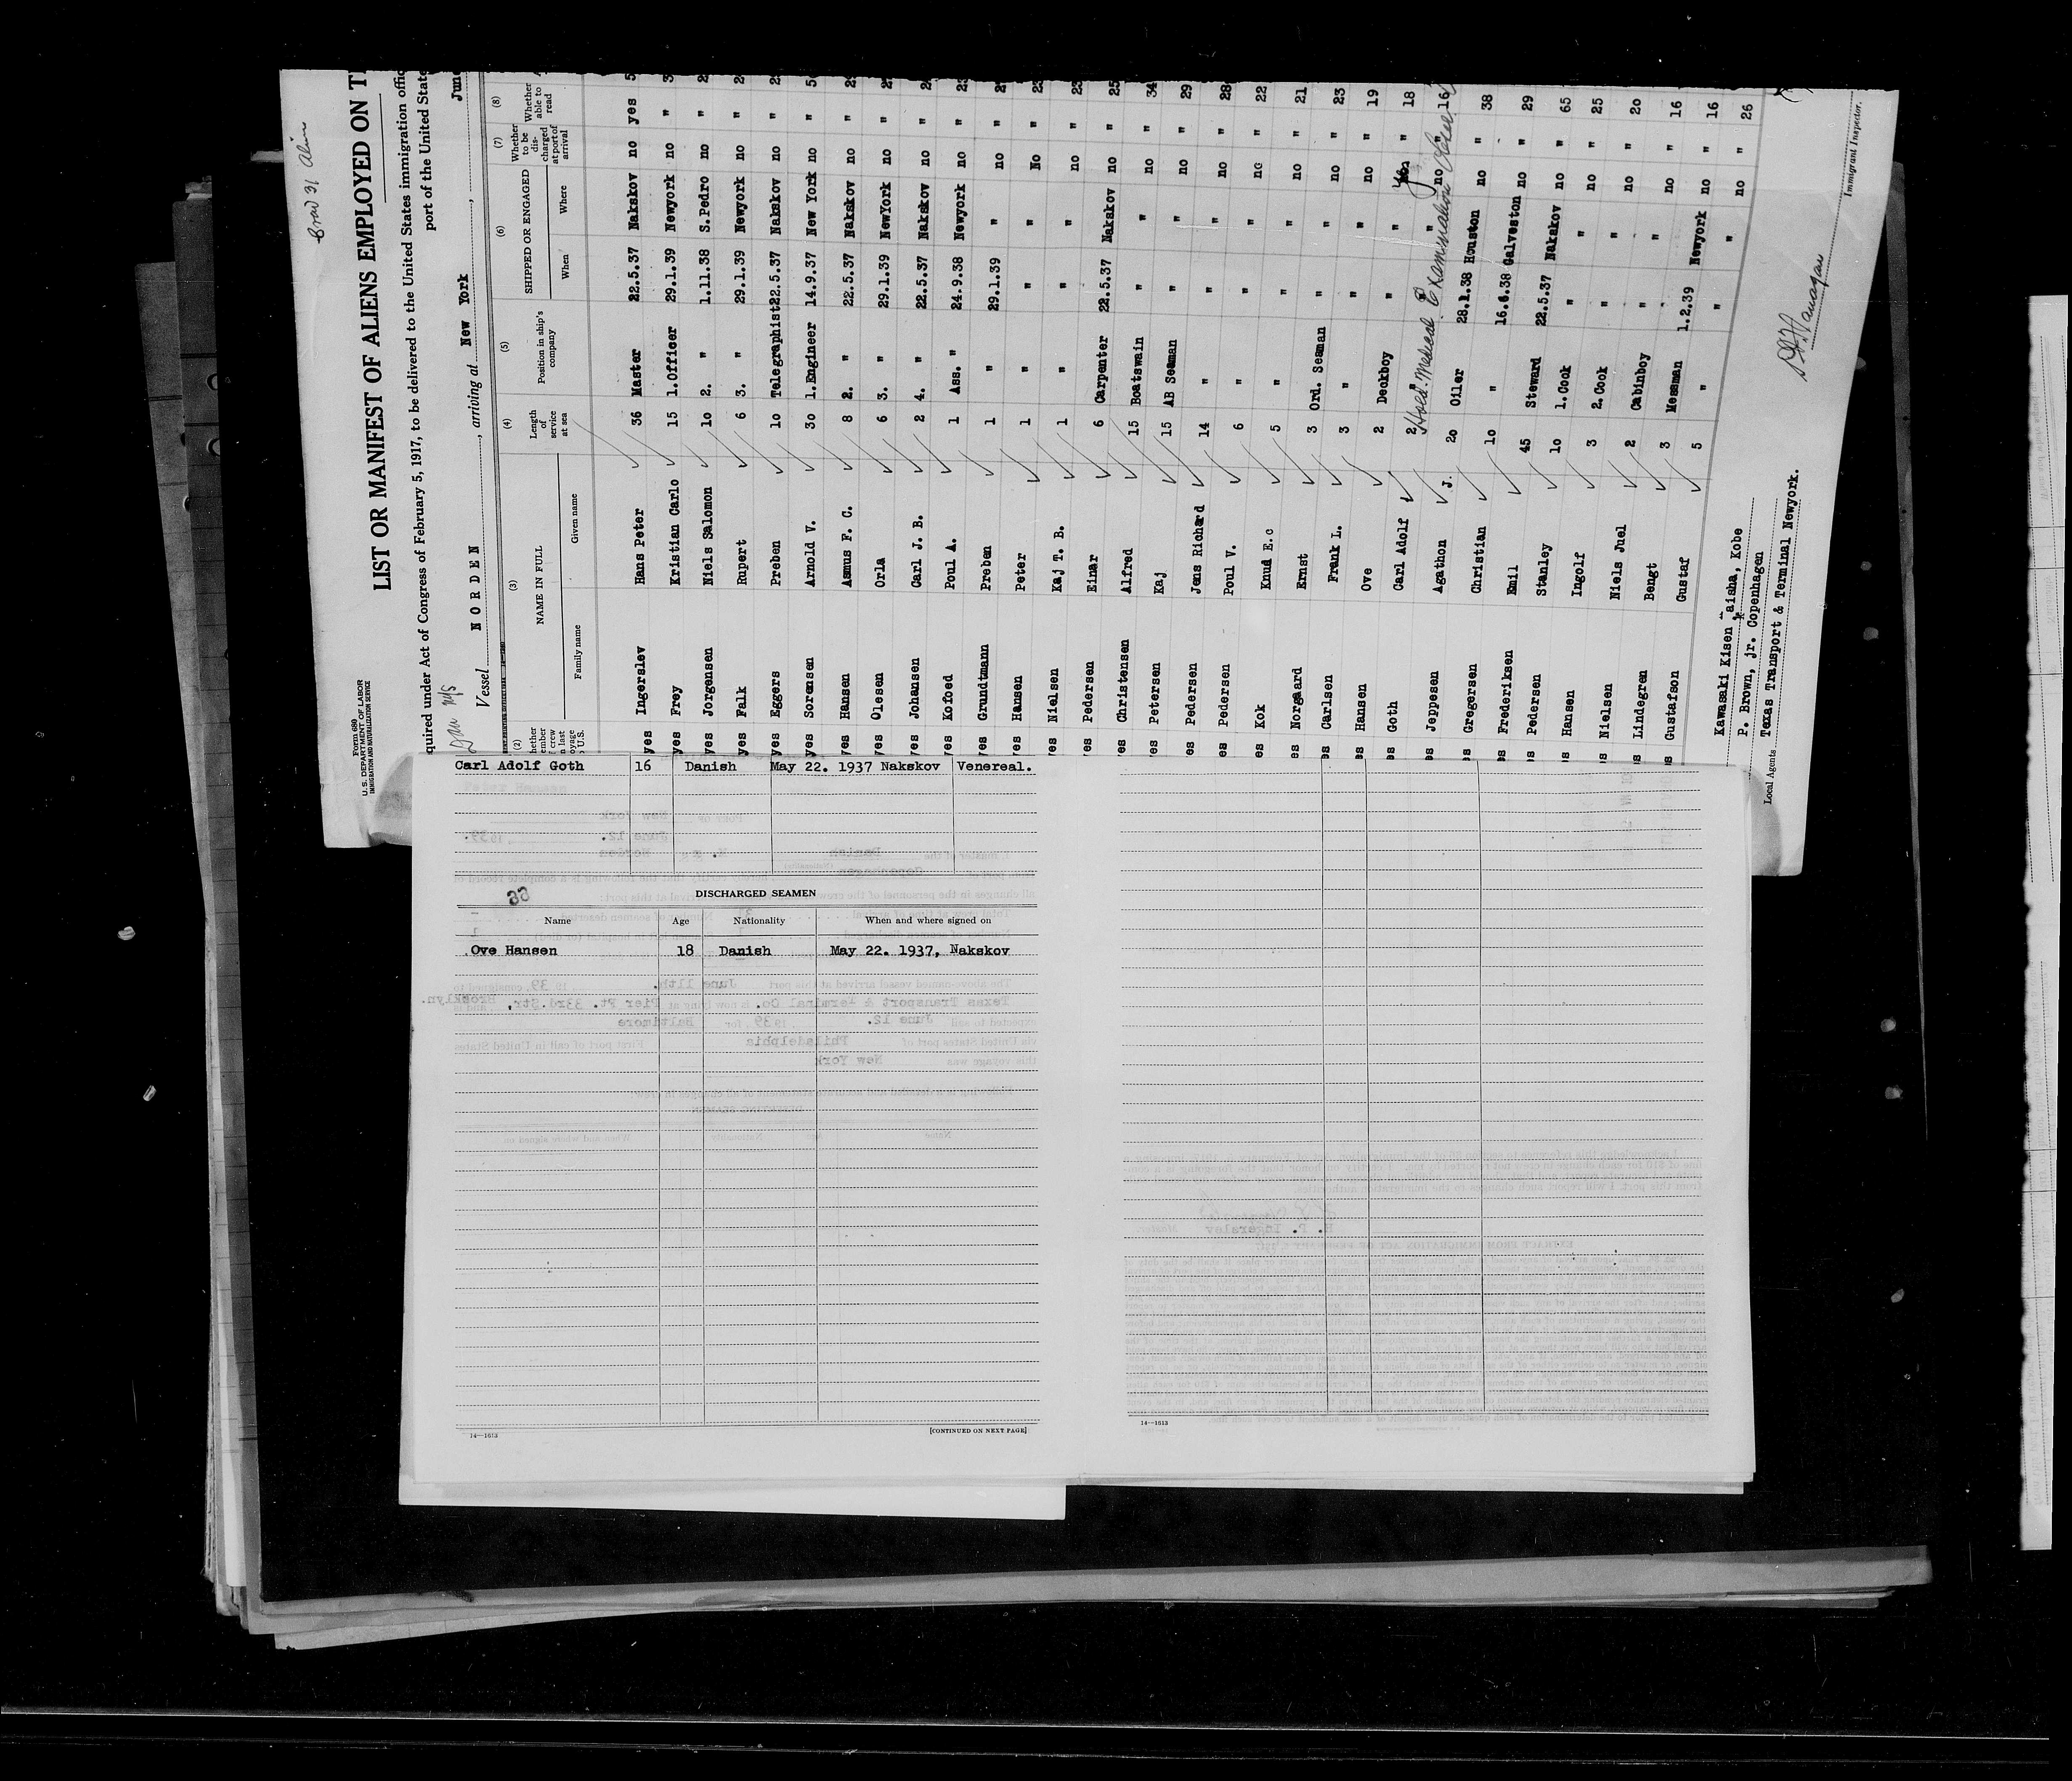 Brod 31 Alien
Form 680
U. S. DEPARTMENT OF LABOR
IMMIGRATION AND NATURALIZATION SERVICE
LIST OR MANIFEST OF ALIENS EMPLOYED ON T
quired under Act of Congress of February 5, 1917, to be delivered to the United States immigration offic
port of the United State
Dan M/S
Vessel NORDEN, arriving at New York, June
(2) (3) (4) (5) (6) (7) (8)
hether ember crew n last oyage U.S. NAME IN FULL Length of service at sea Position in ship's company SHIPPED OR ENGAGED Whether to be discharged at port of arrival Whether able to read
Family name Given name When Where
yes Ingerslev Hans Peter 36 Master 22.5.37 Nakskov no yes 5
yes Frey Kristian Carlo 15 1.Officer 29.1.39 Newyork no " 3
yes Jorgensen Niels Salomon 10 2. " 1.11.38 S.Pedro no " 2
yes Falk Rupert 6 3. " 29.1.39 Newyork no " 2
yes Eggers Preben 1o Telegraphist 22.5.37 Nakskov no " 2
yes Sorensen Arnold V. 3o 1.Engineer 14.9.37 New York no " 5
yes Hansen Asmus F. C. 8 2. " 22.5.37 Nakskov no " 2
yes Olesen Orla 6 3. " 29.1.39 NewYork no " 2
yes Johansen Carl J. B. 2 4. " 22.5.37 Nakskov no " 2
yes Kofoed Poul A. 1 Ass. " 24.9.38 Newyork no " 2
yes Grundtmann Preben 1 " 29.1.39 " no " 2
yes Hansen Peter 1 " " " No " 2
yes Nielsen Kaj T. B. 1 " " " no " 2
yes Pedersen Einar 6 Carpenter 22.5.37 Nakskov no " 25
es Christensen Alfred 15 Boatswain " " no " 34
es Petersen Kaj 15 AB Seaman " " no " 29
es Pedersen Jens Richard 14 " " " no " 28
es Pedersen Poul V. 6 " " " no " 22
es Kok Knud E. 5 " " " no " 21
es Norgaard Ernst 3 Ord. Seaman " " no " 23
es Carlsen Frank L. 3 " " " no " 19
es Hansen Ove 2 Deckboy " " yes " 18
es Goth Carl Adolf 2 " " " no " 16
Hold. Medical Examination
es Jeppesen Agathon J. 20 Oiler 28.1.38 Houston no " 38
es Gregersen Christian 10 " 16.6.38 Galveston no " 29
es Frederiksen Emil 45 Steward 22.5.37 Nakskov no " 65
es Pedersen Stanley 10 1.Cook " " no " 25
es Hansen Ingolf 3 2.Cook " " no " 2o
s Nielsen Niels Juel 2 Cabinboy " " no " 16
s Lindegren Bengt 3 Messman 1.2.39 Newyork no " 16
s Gustafson Gustaf 5 " " " no " 26
Kawasaki Kisen Kaisha, Kobe
P. Brown, jr. Copenhagen
Local Agents Texas Transport & Terminal Newyork.
Immigrant Inspector.
Carl Adolf Goth 16 Danish May 22. 1937 Nakskov Venereal.
33
DISCHARGED SEAMEN
Name Age Nationality When and where signed on
Ove Hansen 18 Danish May 22. 1937, Nakskov
14—1613
[CONTINUED ON NEXT PAGE]
14—1613